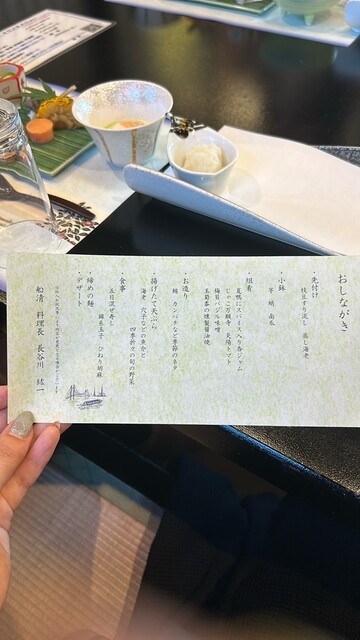 おしながき
・先付け
枝豆すり流し 蒸し海老
・小鉢
芋 蛸 南瓜
・組肴
夏鴨にスパイス入り杏ジャム
じゃこ万願寺 太陽トマト
梅貝バジル味噌
玉蜀黍の燻製醤油焼
・お造り
鯛 カンパチなど季節のネタ
・揚げたて天ぷら
海老 穴子などの魚介と
四季折々の旬の野菜
・食事
五目混ぜ寿し
錦糸玉子 ひねり胡麻
・締めの麺
・デザート
船清 料理長 長谷川 紘一